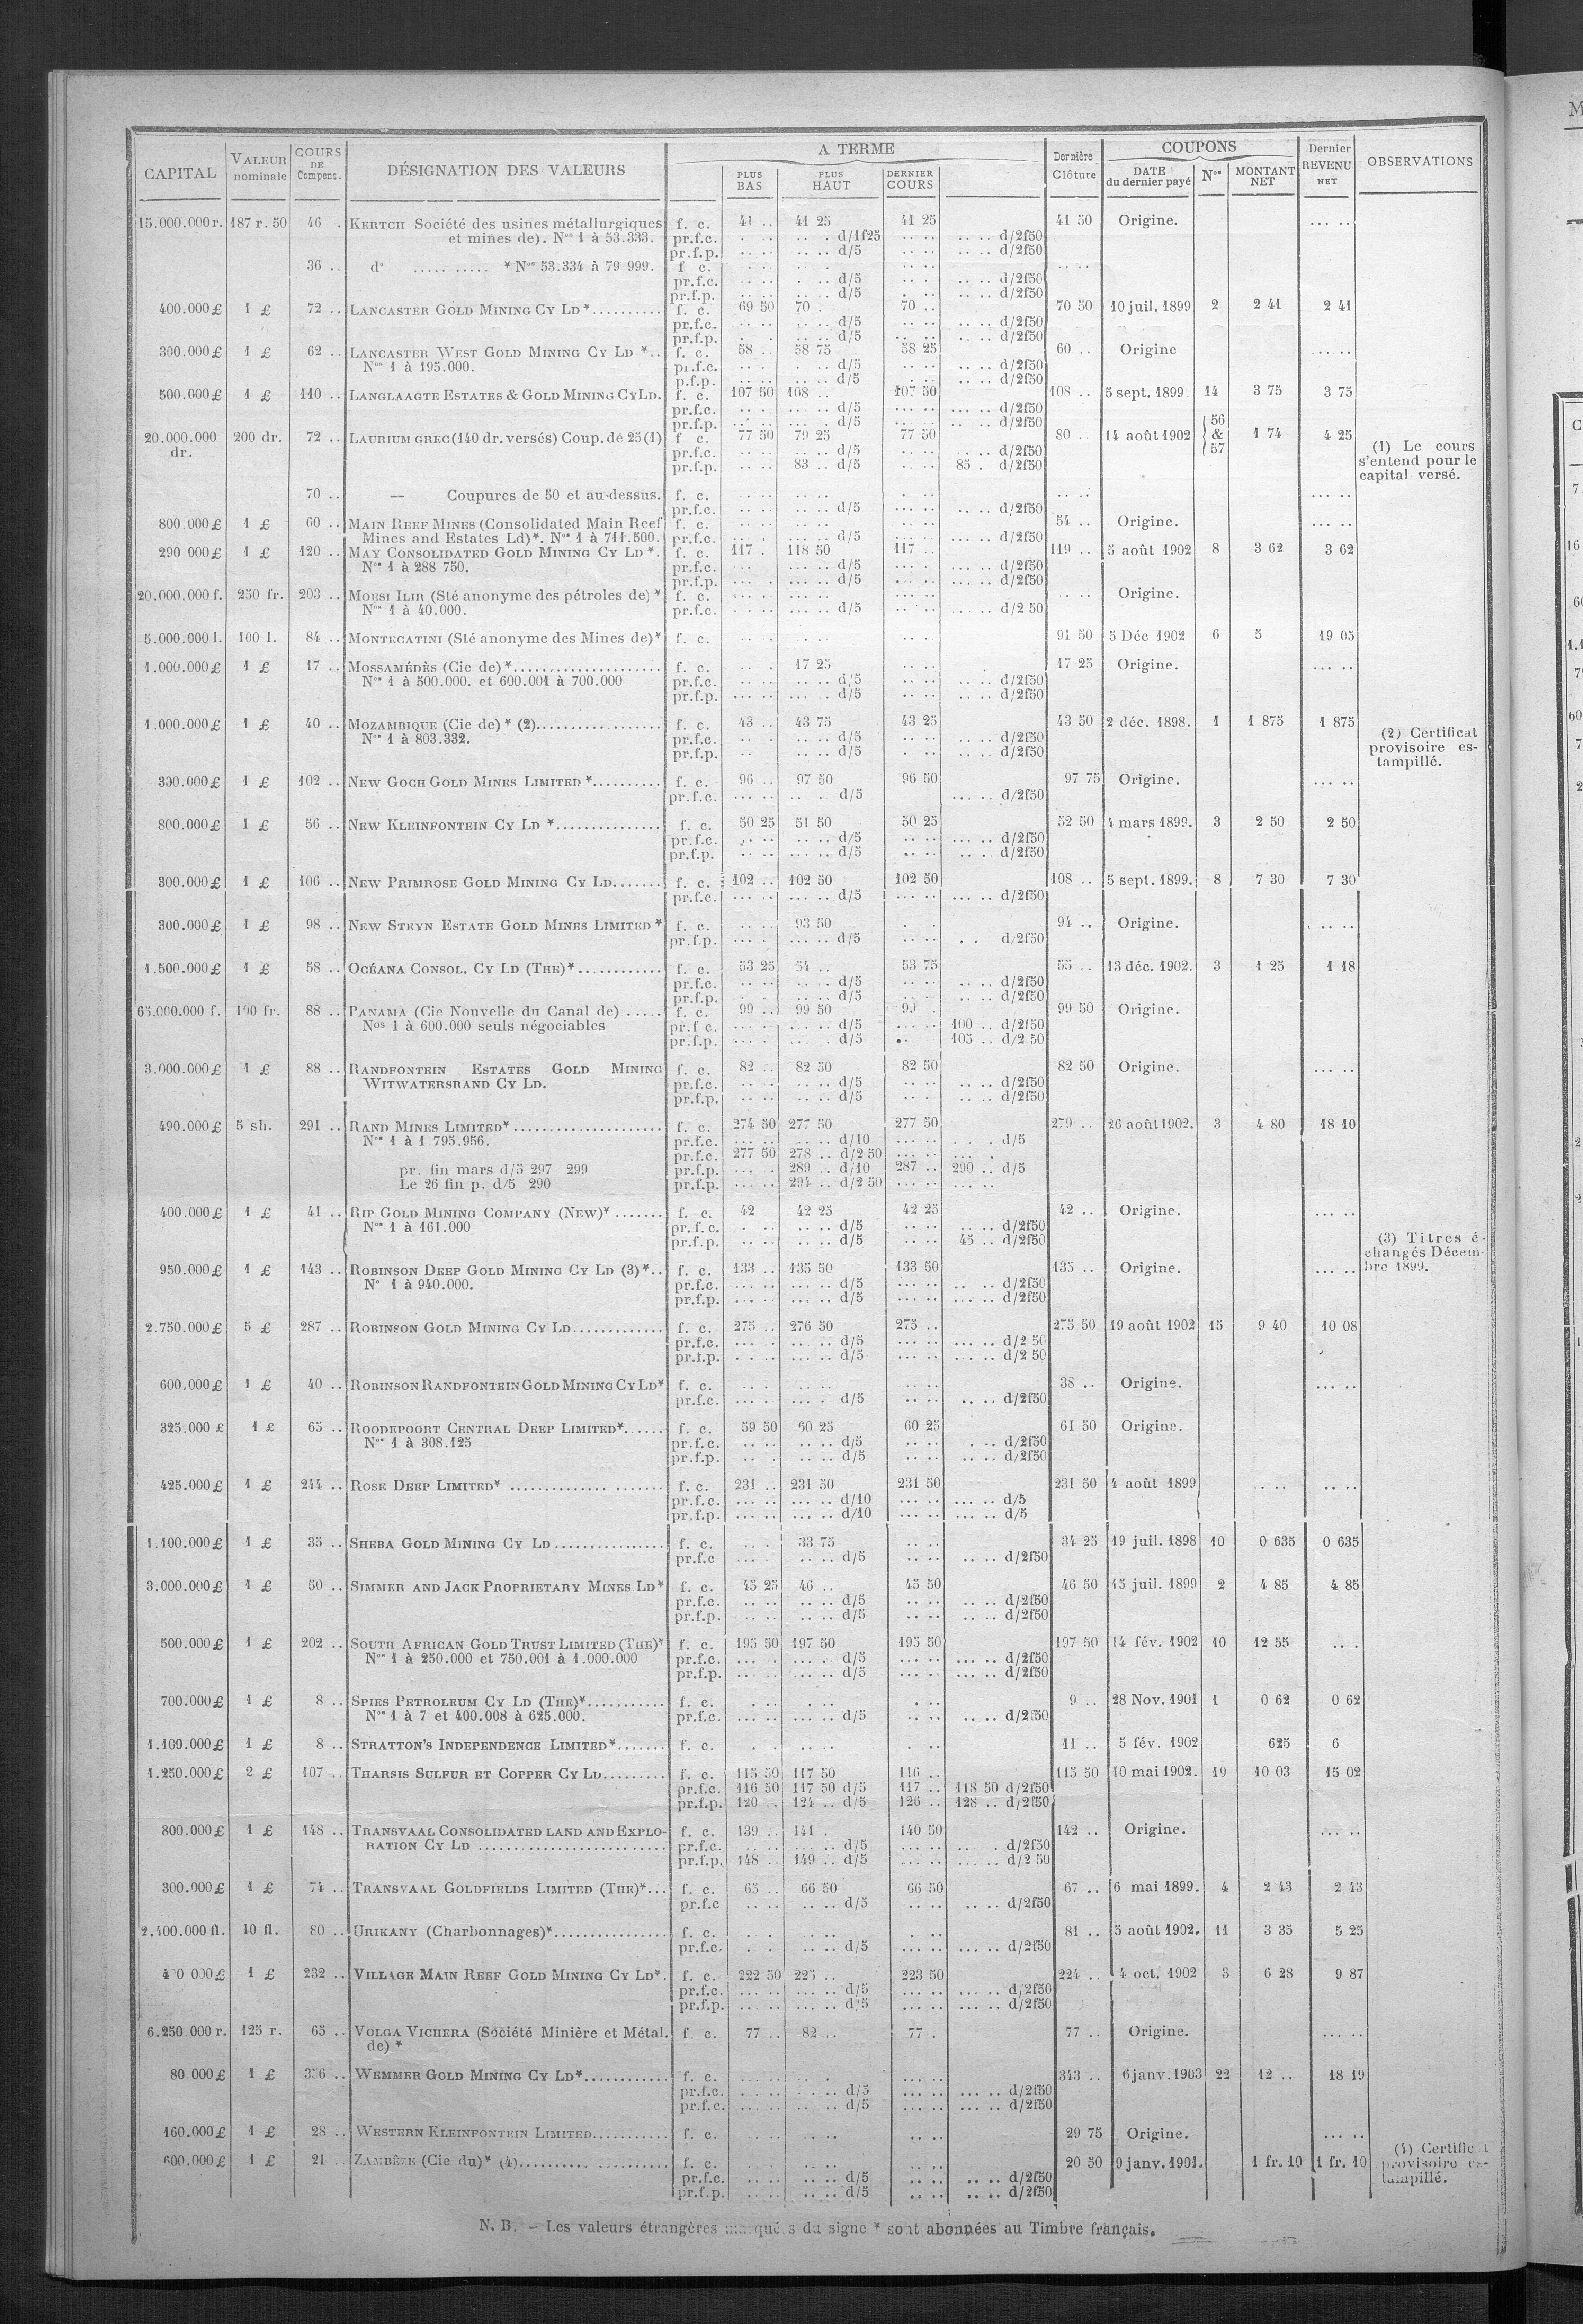 CAPITAL VALEUR nominale COURS DE Compens. DÉSIGNATION DES VALEURS A TERME Dernière Clôture COUPONS Dernier REVENU NET OBSERVATIONS
PLUS BAS PLUS HAUT DERNIER COURS DATE du dernier payé Nos MONTANT NET
15.000.000 r. 187 r. 50 46 . KERTCH Société des usines métallurgiques f. c. 41 .. 41 25 41 25 41 50 Origine. ... ..
et mines de). Nos 1 à 53.333. pr.f.c. d/1f25 d/2f50
pr.f.p. d/5 d/2f50
36 .. do ..... ..... * Nos 53.334 à 79 999. f c.
pr.f.c. d/5 d/2f50
pr.f.p. d/5 d/2f50
400.000 £ 1 £ 72 .. LANCASTER GOLD MINING CY LD *.......... f. c. 69 50 70 . 70 .. 70 50 10 juil. 1899 2 2 41 2 41
pr.f.c. d/5 d/2f50
pr.f.p. d/5 d/2f50
300.000 £ 1 £ 62 .. LANCASTER WEST GOLD MINING CY LD *.. f. c. 58 .. 58 75 58 25 60 .. Origine ... ..
Nos 1 à 195.000. pr.f.c. d/5 d/2f50
p.f.p. d/5 d/2f50
500.000 £ 1 £ 110 .. LANGLAAGTE ESTATES & GOLD MINING CY LD. f. c. 107 50 108 .. 107 50 108 .. 5 sept. 1899 14 3 75 3 75
pr.f.c. d/5 d/2f50
pr.f.p. d/5 d/2f50
20.000.000 dr. 200 dr. 72 .. LAURIUM GREC (140 dr. versés) Coup. de 25 (1) f c. 77 50 79 25 77 50 80 .. 14 août 1902 56 & 57 1 74 4 25
pr.f.c. d/5 d/2f50
pr.f.p. 83 .. d/5 85 . d/2f50
(1) Le cours
s'entend pour le
capital versé.
70 .. — Coupures de 50 et au-dessus. f. c. ... ..
pr.f.c. d/5 d/2f50
800 000 £ 1 £ 60 .. MAIN REEF MINES (Consolidated Main Reef f. c. 54 .. Origine. ... ..
Mines and Estates Ld)*. Nos 1 à 711.500. pr.f.c. d/5 d/2f50
290 000 £ 1 £ 120 .. MAY CONSOLIDATED GOLD MINING CY LD *. f. c. 117 . 118 50 117 .. 119 .. 5 août 1902 8 3 62 3 62
Nos 1 à 288 750. pr.f.c. d/5 d/2f50
pr.f.p. d/5 d/2f50
20.000.000 f. 250 fr. 203 .. MORSI ILIR (Sté anonyme des pétroles de) * f. c. Origine.
Nos 1 à 40.000. pr.f.c. d/5 d/2 50
5.000.000 l. 100 l. 84 .. MONTECATINI (Sté anonyme des Mines de)* f. c. 91 50 5 Déc 1902 6 5 19 05
1.000.000 £ 1 £ 17 .. MOSSAMÉDÈS (Cie de) *..................... f. c. 17 25 17 25 Origine. ... ..
Nos 1 à 500.000. et 600.001 à 700.000 pr.f.c. d/5 d/2f50
pr.f.p. d/5 d/2f50
1.000.000 £ 1 £ 40 .. MOZAMBIQUE (Cie de) * (2).................. f. c. 43 .. 43 75 43 25 43 50 2 déc. 1898. 1 1 875 1 875
Nos 1 à 803.332. pr.f.c. d/5 d/2f50
pr.f.p. d/5 d/2f50
(2) Certificat
provisoire es-
tampillé.
330.000 £ 1 £ 102 .. NEW GOCH GOLD MINES LIMITED *.......... f. c. 96 .. 97 50 96 50 97 75 Origine. ... ..
pr.f.c. d/5 d/2f50
800.000 £ 1 £ 56 .. NEW KLEINFONTEIN CY LD *............... f. c. 50 25 51 50 50 25 52 50 4 mars 1899. 3 2 50 2 50
pr.f.c. d/5 d/2f50
pr.f.p. d/5 d/2f50
300.000 £ 1 £ 106 .. NEW PRIMROSE GOLD MINING CY LD....... f. c. 102 .. 102 50 102 50 108 .. 5 sept. 1899. 8 7 30 7 30
pr.f.c. d/5 d/2f50
300.000 £ 1 £ 98 .. NEW STEYN ESTATE GOLD MINES LIMITED * f. c. 93 50 94 .. Origine. ... ..
pr.f.p. d/5 d/2f50
1.500.000 £ 1 £ 58 .. OCÉANA CONSOL. CY LD (THE)*............ f. c. 53 25 54 .. 53 75 55 .. 13 déc. 1902. 3 1 25 1 18
pr.f.c. d/5 d/2f50
pr.f.p. d/5 d/2f50
65.000.000 f. 100 fr. 88 .. PANAMA (Cie Nouvelle du Canal de) ..... f. c. 99 .. 99 50 99 . 99 50 Origine.
Nos 1 à 600.000 seuls négociables pr.f c. d/5 100 .. d/2f50
pr.f.p. d/5 105 .. d/2 50
3.000.000 £ 1 £ 88 .. RANDFONTEIN ESTATES GOLD MINING f. c. 82 .. 82 50 82 50 82 50 Origine. ... ..
WITWATERSRAND CY LD. pr.f.c. d/5 d/2f50
pr.f.p. d/5 d/2f50
490.000 £ 5 sh. 291 .. RAND MINES LIMITED*..................... f. c. 274 50 277 50 277 50 279 .. 26 août 1902. 3 4 80 18 10
Nos 1 à 1 795.956. pr.f.c. d/10 d/5
pr.f.c. 277 50 278 .. d/2 50
pr. fin mars d/5 297 299 pr.f.p. 289 .. d/10 287 .. 290 .. d/5
Le 26 fin p. d/5 290 pr.f.p. 294 .. d/2 50
400.000 £ 1 £ 41 .. RIP GOLD MINING COMPANY (NEW)* ....... f. c. 42 42 25 42 25 42 .. Origine. ... ..
Nos 1 à 161.000 pr.f.c. d/5 d/2f50
pr.f.p. d/5 45 .. d/2f50
(3) Titres é-
changés Décem-
bre 1899.
950.000 £ 1 £ 143 .. ROBINSON DEEP GOLD MINING CY LD (3)*.. f. c. 133 .. 135 50 133 50 135 .. Origine. ... ..
No 1 à 940.000. pr.f.c. d/5 d/2f50
pr.f.p. d/5 d/2f50
2.750.000 £ 5 £ 287 .. ROBINSON GOLD MINING CY LD............. f. c. 275 .. 276 50 275 .. 275 50 19 août 1902 15 9 40 10 08
pr.f.c. d/5 d/2 50
pr.f.p. d/5 d/2 50
600.000 £ 1 £ 40 .. ROBINSON RANDFONTEIN GOLD MINING CY LD* f. c. 38 .. Origine. ... ..
pr.f.c. d/5 d/2f50
325.000 £ 1 £ 65 .. ROODEPOORT CENTRAL DEEP LIMITED*...... f. c. 59 50 60 25 60 25 61 50 Origine.
Nos 1 à 308.125 pr.f.c. d/5 d/2f50
pr.f.p. d/5 d/2f50
425.000 £ 1 £ 244 .. ROSE DEEP LIMITED* .............. ....... f. c. 231 .. 231 50 231 50 231 50 4 août 1899
pr.f.c. d/10 d/5
pr.f.p. d/10 d/5
1.100.000 £ 1 £ 35 .. SHEBA GOLD MINING CY LD................ f. c. 33 75 34 25 19 juil. 1898 10 0 635 0 635
pr.f.c d/5 d/2f50
3.000.000 £ 1 £ 50 .. SIMMER AND JACK PROPRIETARY MINES LD* f. c. 45 25 46 .. 45 50 46 50 15 juil. 1899 2 4 85 4 85
pr.f.c. d/5 d/2f50
pr.f.p. d/5 d/2f50
500.000 £ 1 £ 202 .. SOUTH AFRICAN GOLD TRUST LIMITED (THE)* f. c. 195 50 197 50 195 50 197 50 14 fév. 1902 10 12 55
Nos 1 à 250.000 et 750.001 à 1.000.000 pr.f.c. d/5 d/2f50
pr.f.p. d/5 d/2f50
700.000 £ 1 £ 8 .. SPIES PETROLEUM CY LD (THE)*........... f. c. 9 .. 28 Nov. 1901 1 0 62 0 62
Nos 1 à 7 et 400.008 à 625.000. pr.f.c. d/5 d/2f50
1.100.000 £ 1 £ 8 .. STRATTON'S INDEPENDENCE LIMITED*....... f. c. 11 .. 5 fév. 1902 625 6
1.250.000 £ 2 £ 107 .. THARSIS SULFUR ET COPPER CY LD......... f. c. 115 50 117 50 116 .. 115 50 10 mai 1902. 19 10 03 15 02
pr.f.c. 116 50 117 50 d/5 117 .. 118 50 d/2f50
pr.f.p. 120 .. 124 .. d/5 126 .. 128 .. d/2f50
800.000 £ 1 £ 148 .. TRANSVAAL CONSOLIDATED LAND AND EXPLO- f. c. 139 .. 141 . 140 50 142 .. Origine. ... ..
RATION CY LD .......................... pr.f.c. d/5 d/2f50
pr.f.p. 148 .. 149 .. d/5 d/2 50
300.000 £ 1 £ 74 .. TRANSVAAL GOLDFIELDS LIMITED (THE)*... f. c. 65 .. 66 50 66 50 67 .. 6 mai 1899. 4 2 43 2 43
pr.f.c d/5 d/2f50
2.400.000 fl. 10 fl. 80 .. URIKANY (Charbonnages)*................ f. c. 81 .. 5 août 1902. 11 3 35 5 25
pr.f.c. d/5 d/2f50
1 £ 232 .. VILLAGE MAIN REEF GOLD MINING CY LD*. f. c. 222 50 225 .. 223 50 224 .. 4 oct. 1902 3 6 28 9 87
pr.f.c. d/5 d/2f50
pr.f.p. d/5 d/2f50
6.250 000 r. 125 r. 65 .. VOLGA VICHERA (Société Minière et Métal. f. c. 77 .. 82 .. 77 . 77 .. Origine. ... ..
de) *
80 000 £ 1 £ WEMMER GOLD MINING CY LD*............ f. c. 343 .. 6 janv. 1903 22 12 .. 18 19
pr.f.c. d/5 d/2f50
pr.f.c. d/5 d/2f50
160.000 £ 1 £ 28 .. WESTERN KLEINFONTEIN LIMITED........... f. c. 29 75 Origine. ... ..
600.000 £ 1 £ 21 .. ZAMBÈZE (Cie du)* (4).......... .......... f. c. 20 50 9 janv. 1901. 1 fr. 10 1 fr. 10
pr.f.c. d/5 d/2f50
pr.f.p. d/5 d/2f50
(4) Certificat
provisoire es-
tampillé.
N. B. — Les valeurs étrangères marquées du signe * sont abonnées au Timbre français.